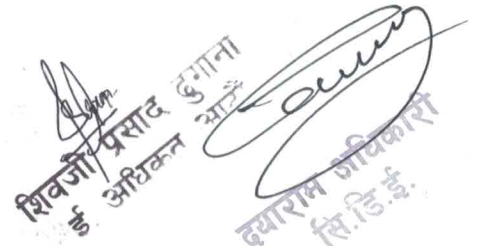 शिवजी प्रसाद ढुगाना
ई. अधिकृत आठौं
दयाराम अधिकारी
सि.डि.ई.